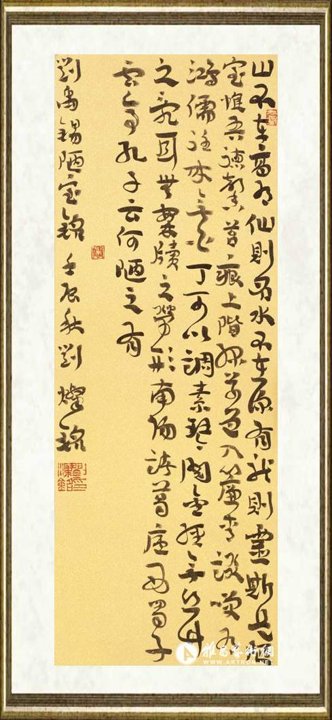 山不在高有仙则名水不在深有龙则灵斯是陋
室惟吾德馨苔痕上阶绿草色入帘青谈笑有
鸿儒往来无白丁可以调素琴阅金经无丝竹
之乱耳无案牍之劳形南阳诸葛庐西蜀子
云亭孔子云何陋之有
劉禹锡陋室铭 壬辰秋劉燦铭
雅昌艺术网